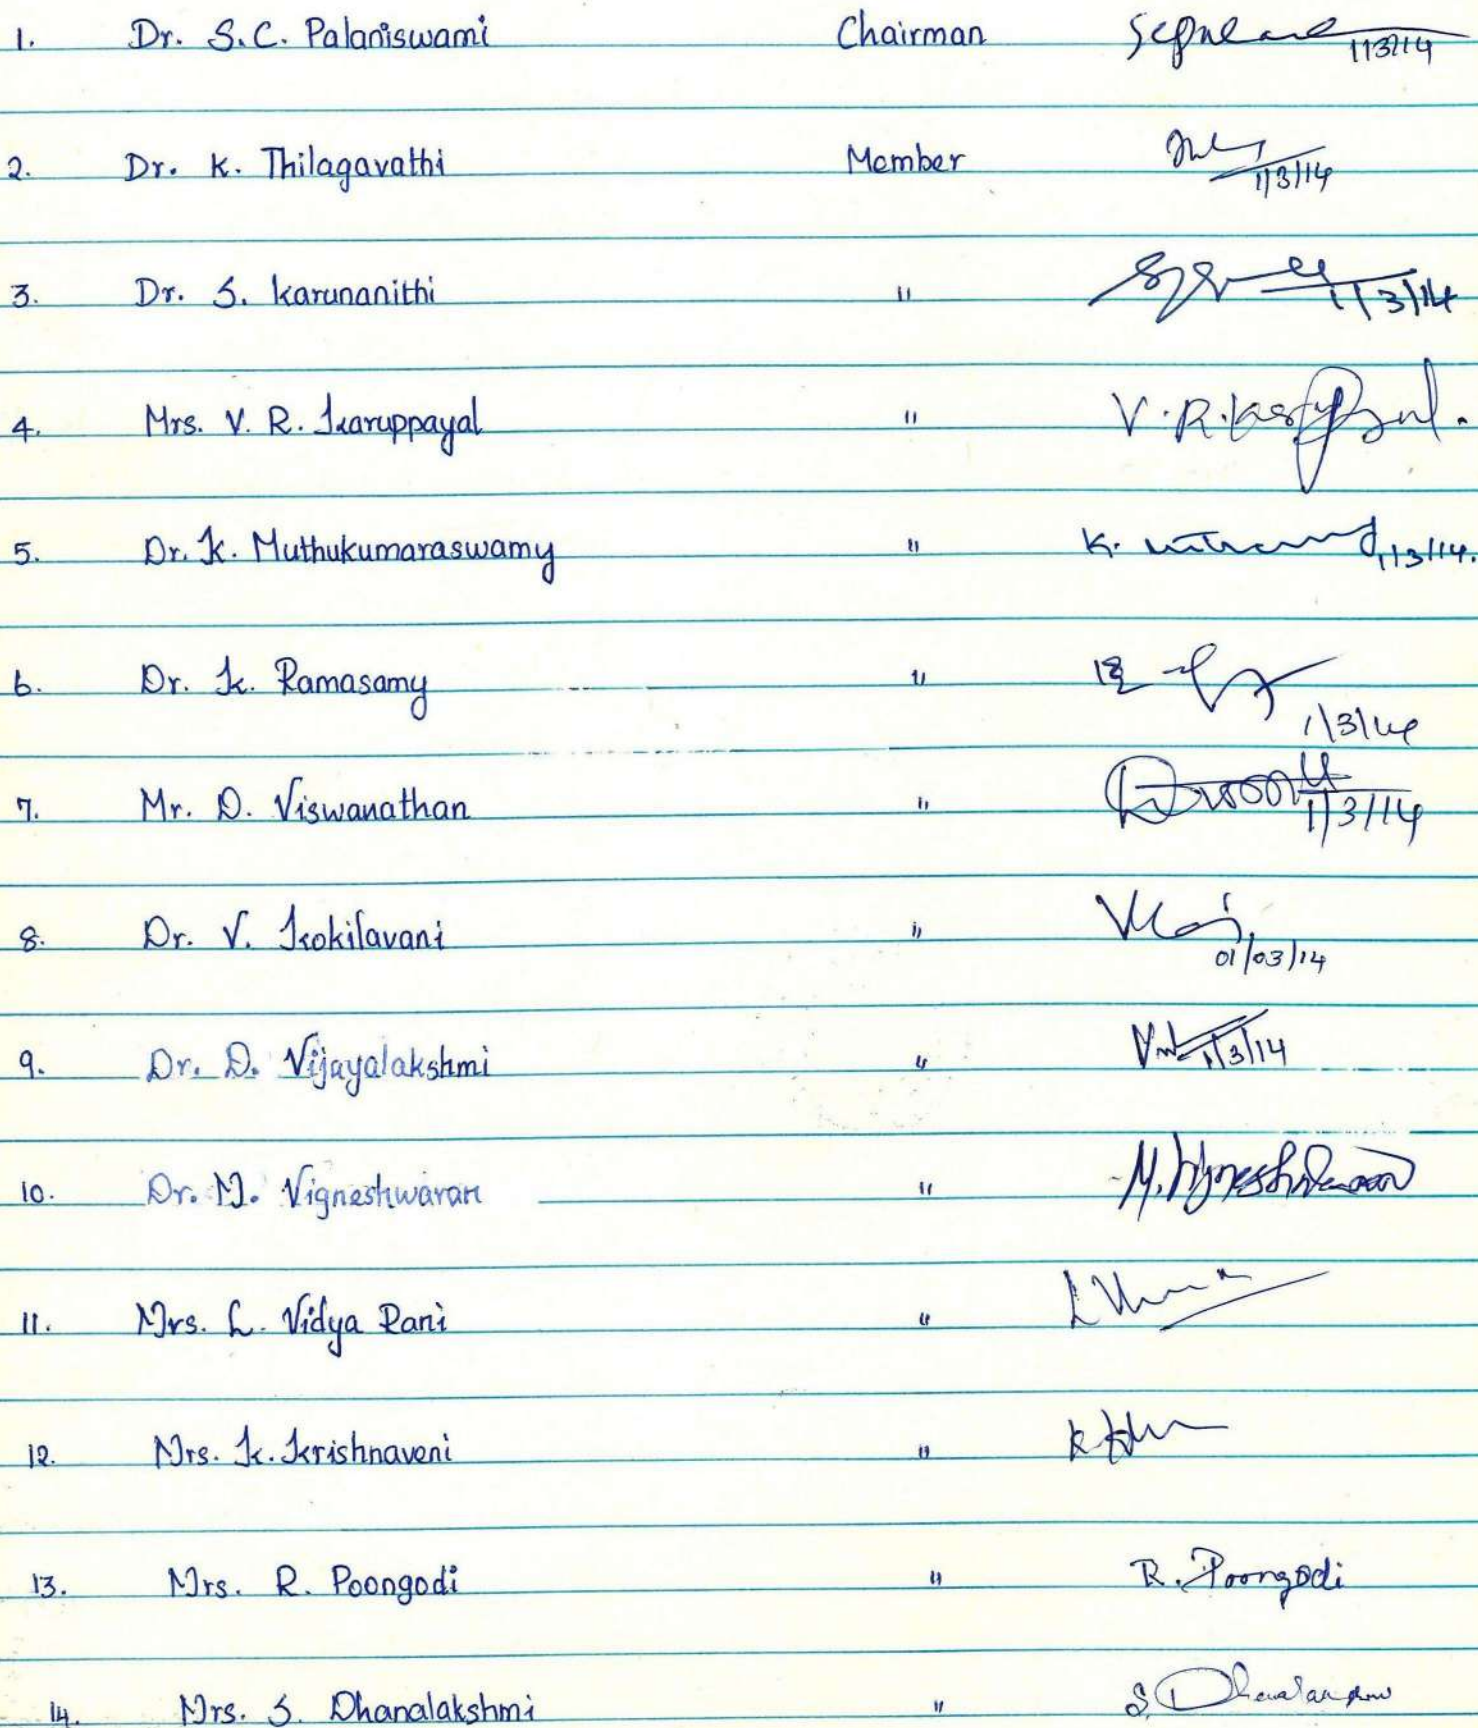 1. Dr. S.C. Palaniswami Chairman 1/3/14
2. Dr. K. Thilagavathi Member 1/3/14
3. Dr. S. Karunanithi " 1/3/14
4. Mrs. V. R. Karuppayal " V. R.
5. Dr. K. Muthukumaraswamy " K. 1/3/14.
6. Dr. K. Ramasamy " 1/3/14
7. Mr. D. Viswanathan " 1/3/14
8. Dr. V. Kokilavani " 01/03/14
9. Dr. D. Vijayalakshmi " 1/3/14
10. Dr. M. Vigneshwaran " M. Vigneshwaran
11. Mrs. L. Vidya Rani "
12. Mrs. K. Krishnaveni "
13. Mrs. R. Poongodi " R. Poongodi
14. Mrs. S. Dhanalakshmi " S. Dhanalakshmi